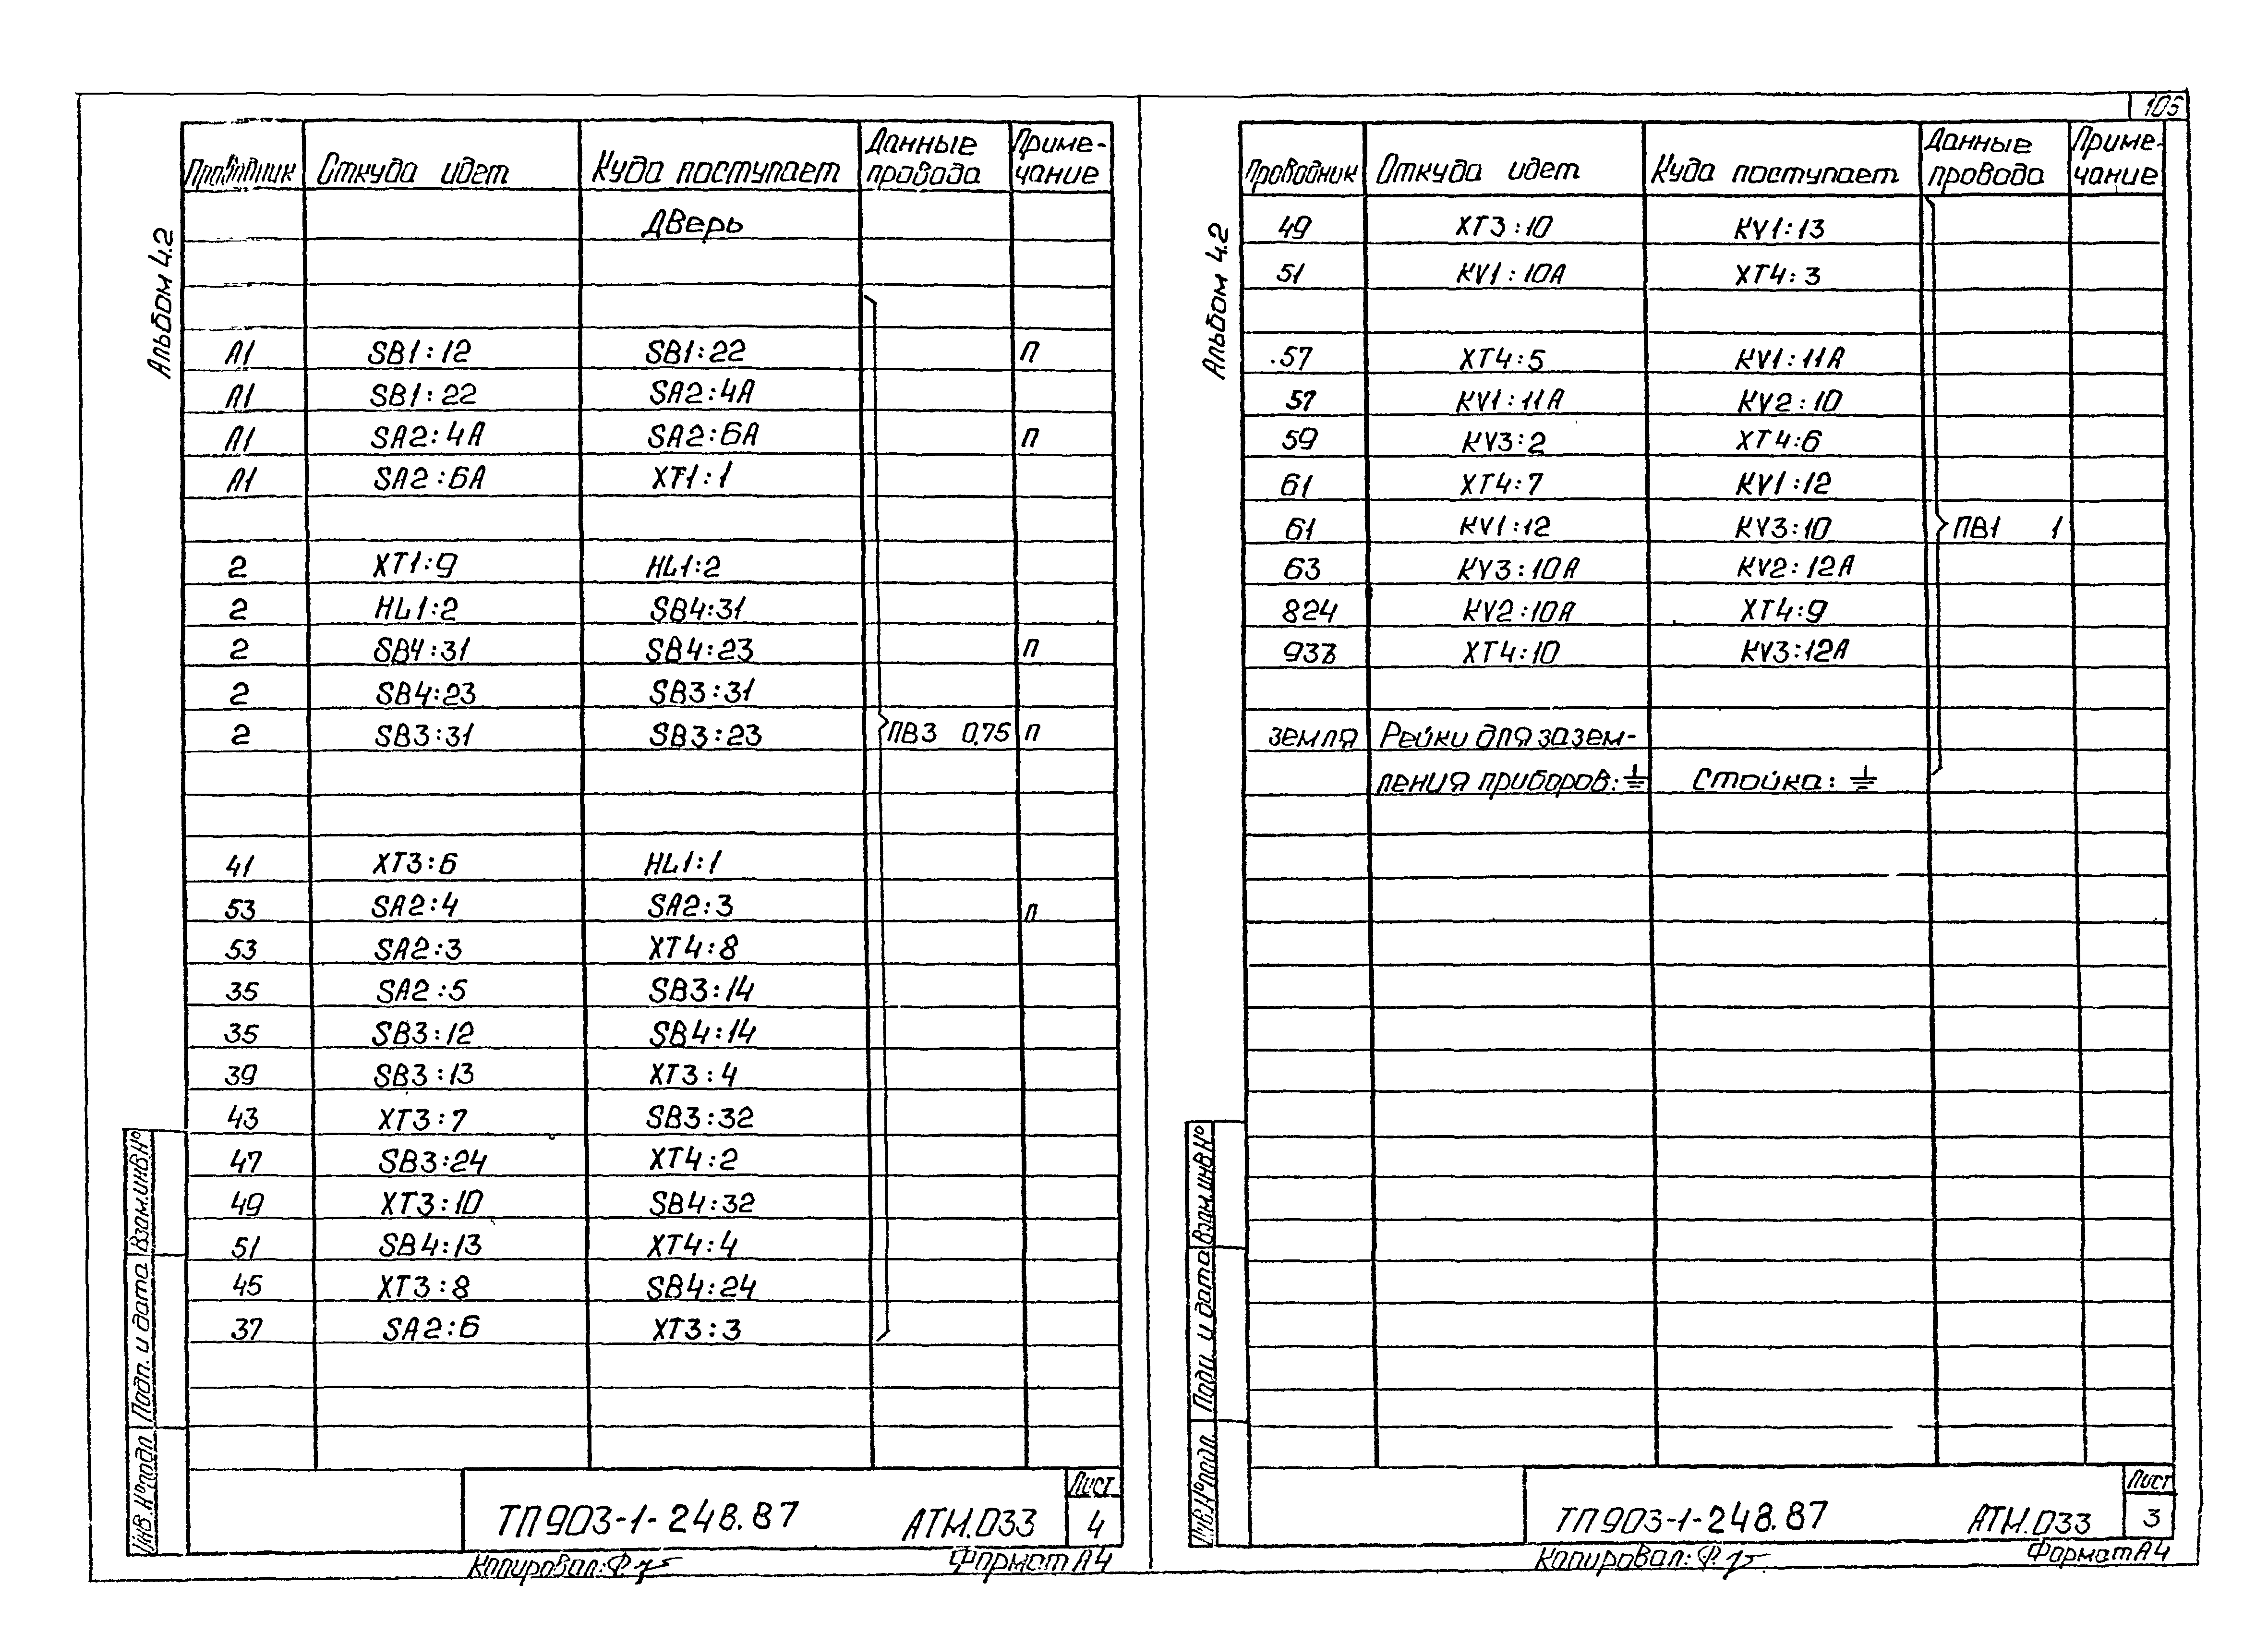 105
Альбом 4.2
Проводник Откуда идет Куда поступает Данные провода Приме-чание
Дверь
А1 SB1:12 SB1:22 п
А1 SB1:22 SA2:4А
А1 SA2:4А SA2:6А п
А1 SA2:6А XT1:1
2 XT1:9 HL1:2
2 HL1:2 SB4:31
2 SB4:31 SB4:23 п
2 SB4:23 SB3:31
2 SB3:31 SB3:23 ПВ3 0,75 п
41 XT3:6 HL1:1
53 SA2:4 SA2:3 п
53 SA2:3 XT4:8
35 SA2:5 SB3:14
35 SB3:12 SB4:14
39 SB3:13 XT3:4
43 XT3:7 SB3:32
47 SB3:24 XT4:2
49 XT3:10 SB4:32
51 SB4:13 XT4:4
45 XT3:8 SB4:24
37 SA2:6 XT3:3
Инв.№подл Подп. и дата Взам.инв.№
ТП903-1-248.87 АТМ.033 Лист 4
Копировал: Формат А4
Альбом 4.2
Проводник Откуда идет Куда поступает Данные провода Приме-чание
49 XT3:10 KV1:13
51 KV1:10А XT4:3
57 XT4:5 KV1:11А
57 KV1:11А KV2:10
59 KV3:2 XT4:6
61 XT4:7 KV1:12
61 KV1:12 KV3:10 ПВ1 1
63 KV3:10А KV2:12А
824 KV2:10А XT4:9
933 XT4:10 KV3:12А
земля Рейки для зазем-
ления приборов:⏚ Стойка:⏚
Инв.№подл Подп. и дата Взам.инв.№
ТП903-1-248.87 АТМ.033 Лист 3
Копировал: Формат А4